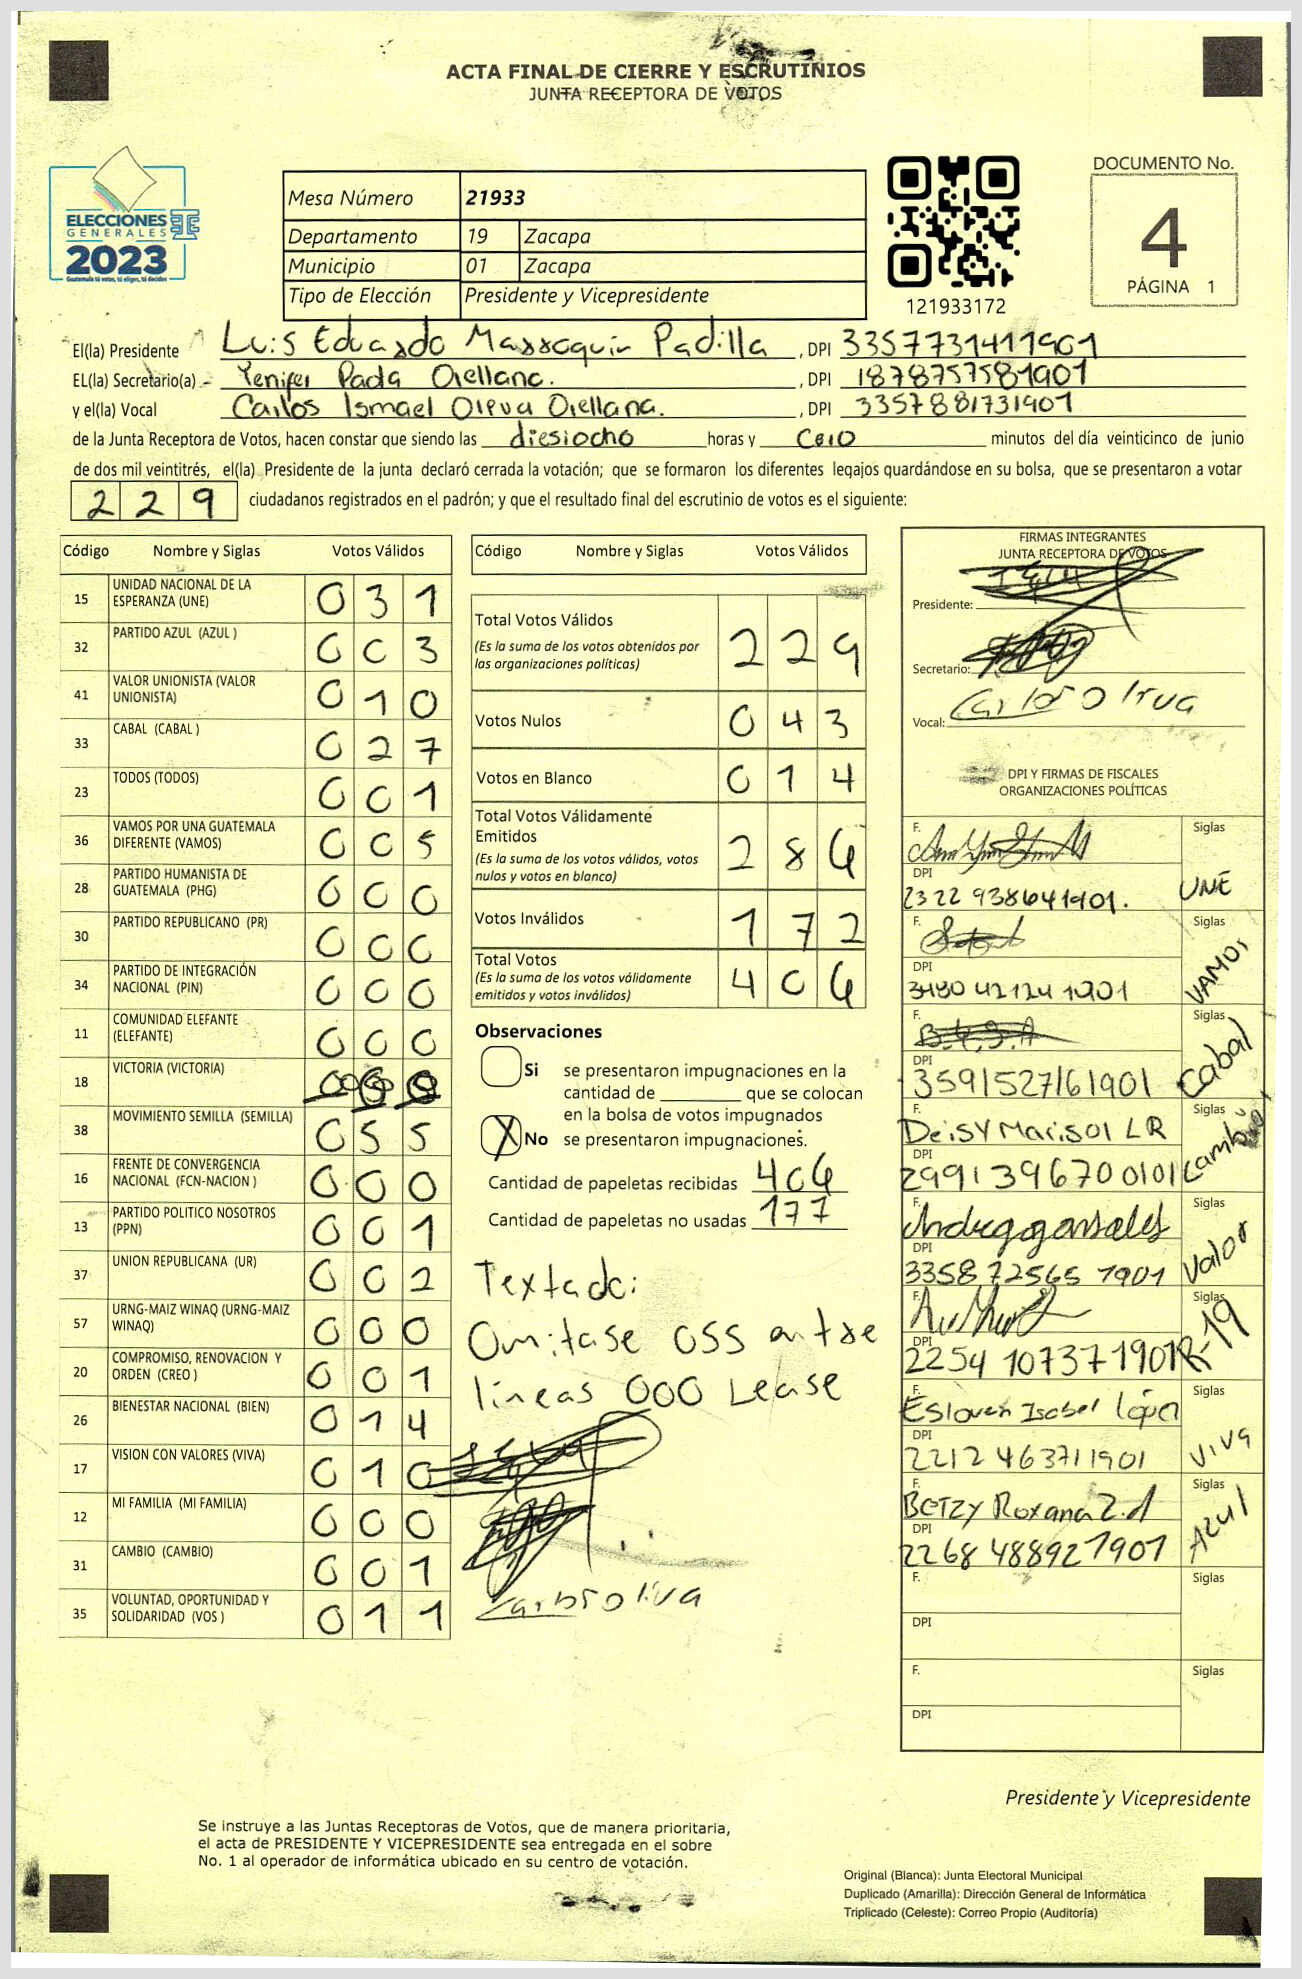 ACTA FINAL DE CIERRE Y ESCRUTINIOS
JUNTA RECEPTORA DE VOTOS
ELECCIONES
GENERALES
2023
Guatemala tú votas, tú eliges, tú decides
Mesa Número 21933
Departamento 19 Zacapa
Municipio 01 Zacapa
Tipo de Elección Presidente y Vicepresidente
121933172
DOCUMENTO No.
4
PÁGINA 1
El(la) Presidente Luis Eduardo Massoquin Padilla, DPI 3357731411901
EL(la) Secretario(a) Yenifer Pada Orellana. , DPI 1878757581901
y el(la) Vocal Carlos Ismael Oliva Orellana. , DPI 3357881731901
de la Junta Receptora de Votos, hacen constar que siendo las diesiocho horas y cero minutos del día veinticinco de junio
de dos mil veintitrés, el(la) Presidente de la junta declaró cerrada la votación; que se formaron los diferentes legajos quardándose en su bolsa, que se presentaron a votar
229 ciudadanos registrados en el padrón; y que el resultado final del escrutinio de votos es el siguiente:
Código Nombre y Siglas Votos Válidos
15 UNIDAD NACIONAL DE LA ESPERANZA (UNE) 031
32 PARTIDO AZUL (AZUL ) 003
41 VALOR UNIONISTA (VALOR UNIONISTA) 010
33 CABAL (CABAL ) 027
23 TODOS (TODOS) 001
36 VAMOS POR UNA GUATEMALA DIFERENTE (VAMOS) 005
28 PARTIDO HUMANISTA DE GUATEMALA (PHG) 000
30 PARTIDO REPUBLICANO (PR) 000
34 PARTIDO DE INTEGRACIÓN NACIONAL (PIN) 000
11 COMUNIDAD ELEFANTE (ELEFANTE) 000
18 VICTORIA (VICTORIA)
38 MOVIMIENTO SEMILLA (SEMILLA) 055
16 FRENTE DE CONVERGENCIA NACIONAL (FCN-NACION ) 000
13 PARTIDO POLITICO NOSOTROS (PPN) 001
37 UNION REPUBLICANA (UR) 002
57 URNG-MAIZ WINAQ (URNG-MAIZ WINAQ) 000
20 COMPROMISO, RENOVACION Y ORDEN (CREO ) 001
26 BIENESTAR NACIONAL (BIEN) 014
17 VISION CON VALORES (VIVA) 010
12 MI FAMILIA (MI FAMILIA) 000
31 CAMBIO (CAMBIO) 001
35 VOLUNTAD, OPORTUNIDAD Y SOLIDARIDAD (VOS ) 011
Código Nombre y Siglas Votos Válidos
Total Votos Válidos 229
(Es la suma de los votos obtenidos por las organizaciones políticas)
Votos Nulos 043
Votos en Blanco 014
Total Votos Válidamente Emitidos 286
(Es la suma de los votos válidos, votos nulos y votos en blanco)
Votos Inválidos 172
Total Votos 406
(Es la suma de los votos válidamente emitidos y votos inválidos)
Observaciones
Si se presentaron impugnaciones en la
cantidad de ________ que se colocan
en la bolsa de votos impugnados
X No se presentaron impugnaciones.
Cantidad de papeletas recibidas 406
Cantidad de papeletas no usadas 177
Textado:
Omitase 055 entre
lineas 000 Lease
Carlos Oliva
FIRMAS INTEGRANTES
JUNTA RECEPTORA DE VOTOS
Presidente:
Secretario:
Vocal: Carlos Oliva
DPI Y FIRMAS DE FISCALES
ORGANIZACIONES POLÍTICAS
F. Siglas
DPI
2322 938641901. UNE
F. Siglas
DPI
3480 42124 1901 VAMOS
F. B.Y.J.A Siglas
DPI
3591527161901 Cabal
F. Deisy Marisol LR Siglas
DPI
2991396700101 Cambio
F. Siglas
DPI
3358 72565 1901 Valor
F. Siglas
DPI
2254 107371901 R-19
F. Isabel López Siglas
DPI
2212 463711901 VIVA
F. Betzy Roxana Z.d Siglas
DPI
2268 488921901 Azul
F. Siglas
DPI
F. Siglas
DPI
Presidente y Vicepresidente
Se instruye a las Juntas Receptoras de Votos, que de manera prioritaria,
el acta de PRESIDENTE Y VICEPRESIDENTE sea entregada en el sobre
No. 1 al operador de informática ubicado en su centro de votación.
Original (Blanca): Junta Electoral Municipal
Duplicado (Amarilla): Dirección General de Informática
Triplicado (Celeste): Correo Propio (Auditoría)